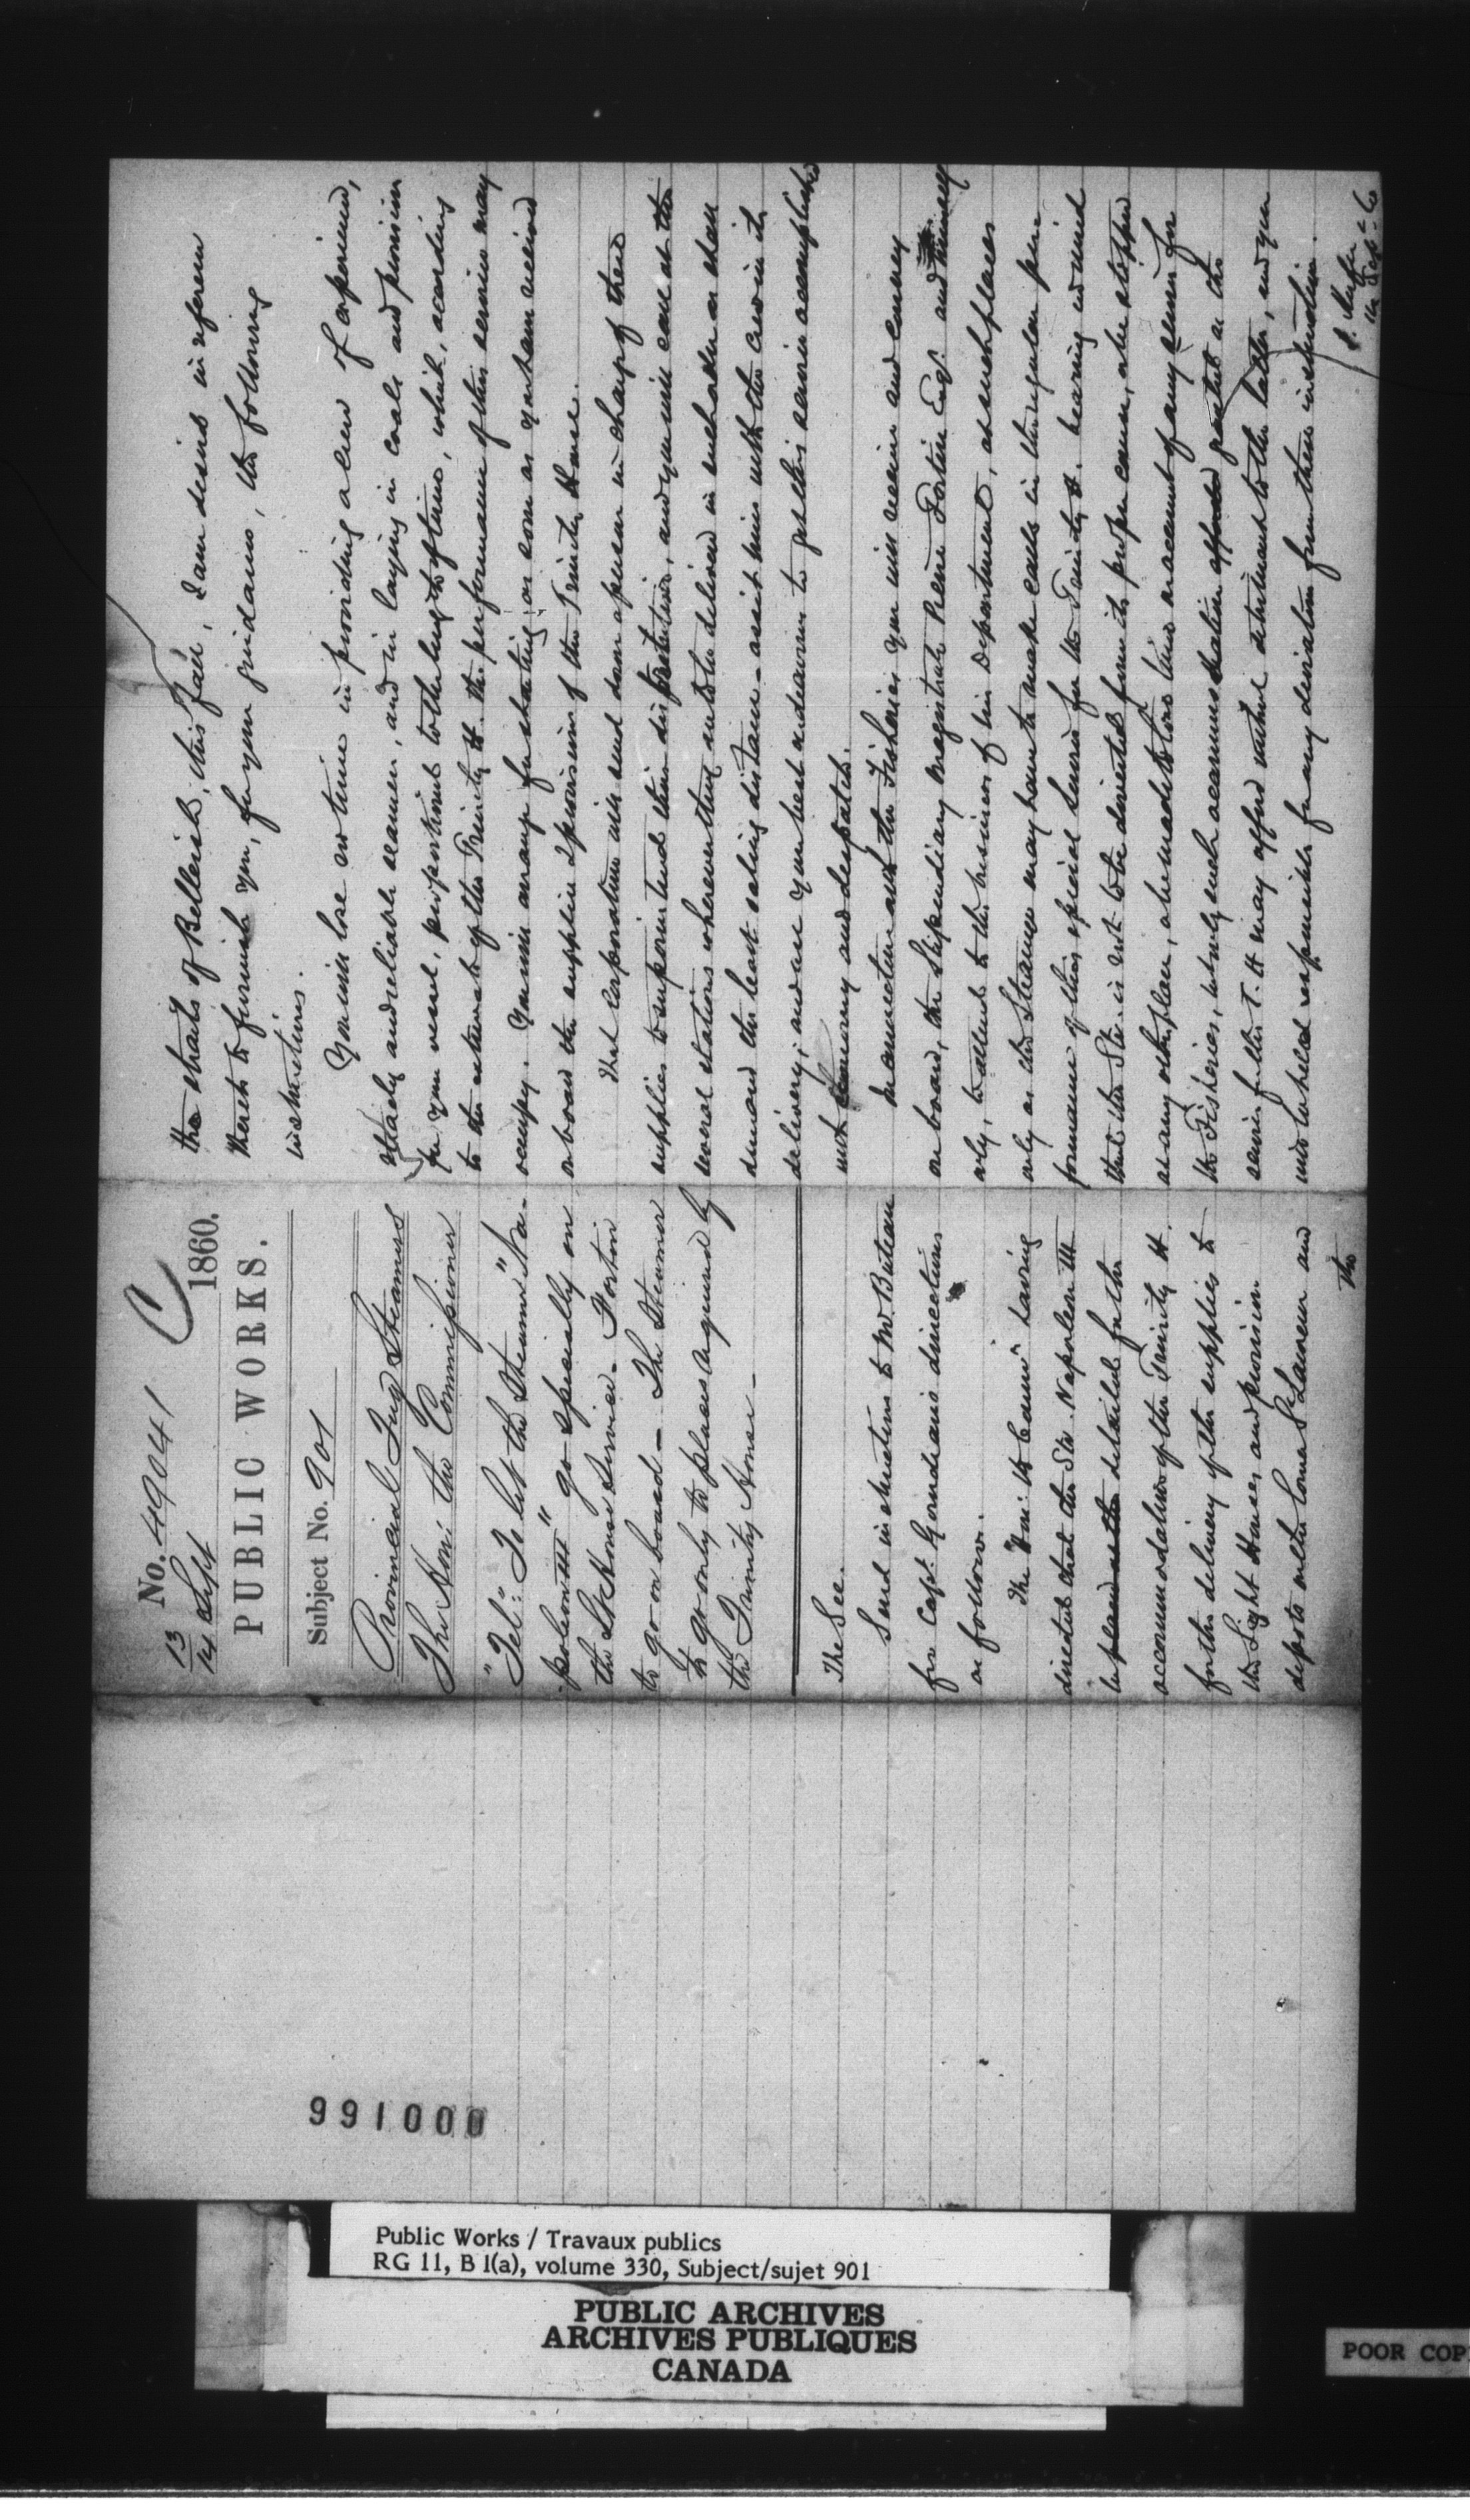 No. 49041
13/14 Sept 1860.
C
PUBLIC WORKS.
Subject No. 901
Provincial Tug Steamers
The Hon: the Commissioner
"Tel": To let the Steamer "Na-
poleon III" go specially on
the Lt House Service - Fortin
to go on board - The Steamer
to go only to places required by
the Trinity House -
The Sec.
Send instructions to Mr. Buteau
for Capt. Gourdeau's directions
as follows.
The Hon: the Comr. having
directed that the Str. Napoleon III
be placed at the detailed for the
accommodation of the Trinity H.
for the delivery of the supplies to
the Light Houses and provision
depots in the lower St Lawrence and
the
the straits of Bellisle, this Fall, I am desired in reference
thereto to furnish you, for your guidance, the following
instructions.
You will lose no time in providing a crew of experienced,
steady and reliable seamen, and in laying in coals and provision
for your vessel, proportioned to the length of time, which, according
to the estimate of the Trinity H. the performance of this service may
occupy. You will arrange for starting as soon as you have received
on board the supplies & provisions of the Trinity House.
That corporation will send down a person in charge of these
supplies to superintend their distribution, and you will call at the
several stations where they are to be delivered in such order as shall
demand the least sailing distance - assist him with the crew in its
delivery; and use your best endeavours to get this service accomplished
with economy and despatch.
In connection with the Fisheries you will receive and convey
on board, the Stipendiary Magistrate Pierre Fortin Esqr. and himself
only, to attend to the business of his Department, at such places
only as the Steamer may have to make calls in the regular per-
formance of this special service for the Trinity H. bearing in mind
that the Str. is not to be diverted from its proper course, or be stopped
at any other place, or be made to lose time on account of any service for
the Fisheries, but only such accommodation afforded granted as the
service for the T. H may afford without detriment to the latter, and you
will be held responsible for any deviation from these instructions.
991000
Public Works / Travaux publics
RG 11, B 1(a), volume 330, Subject/sujet 901
PUBLIC ARCHIVES
ARCHIVES PUBLIQUES
CANADA
POOR COP